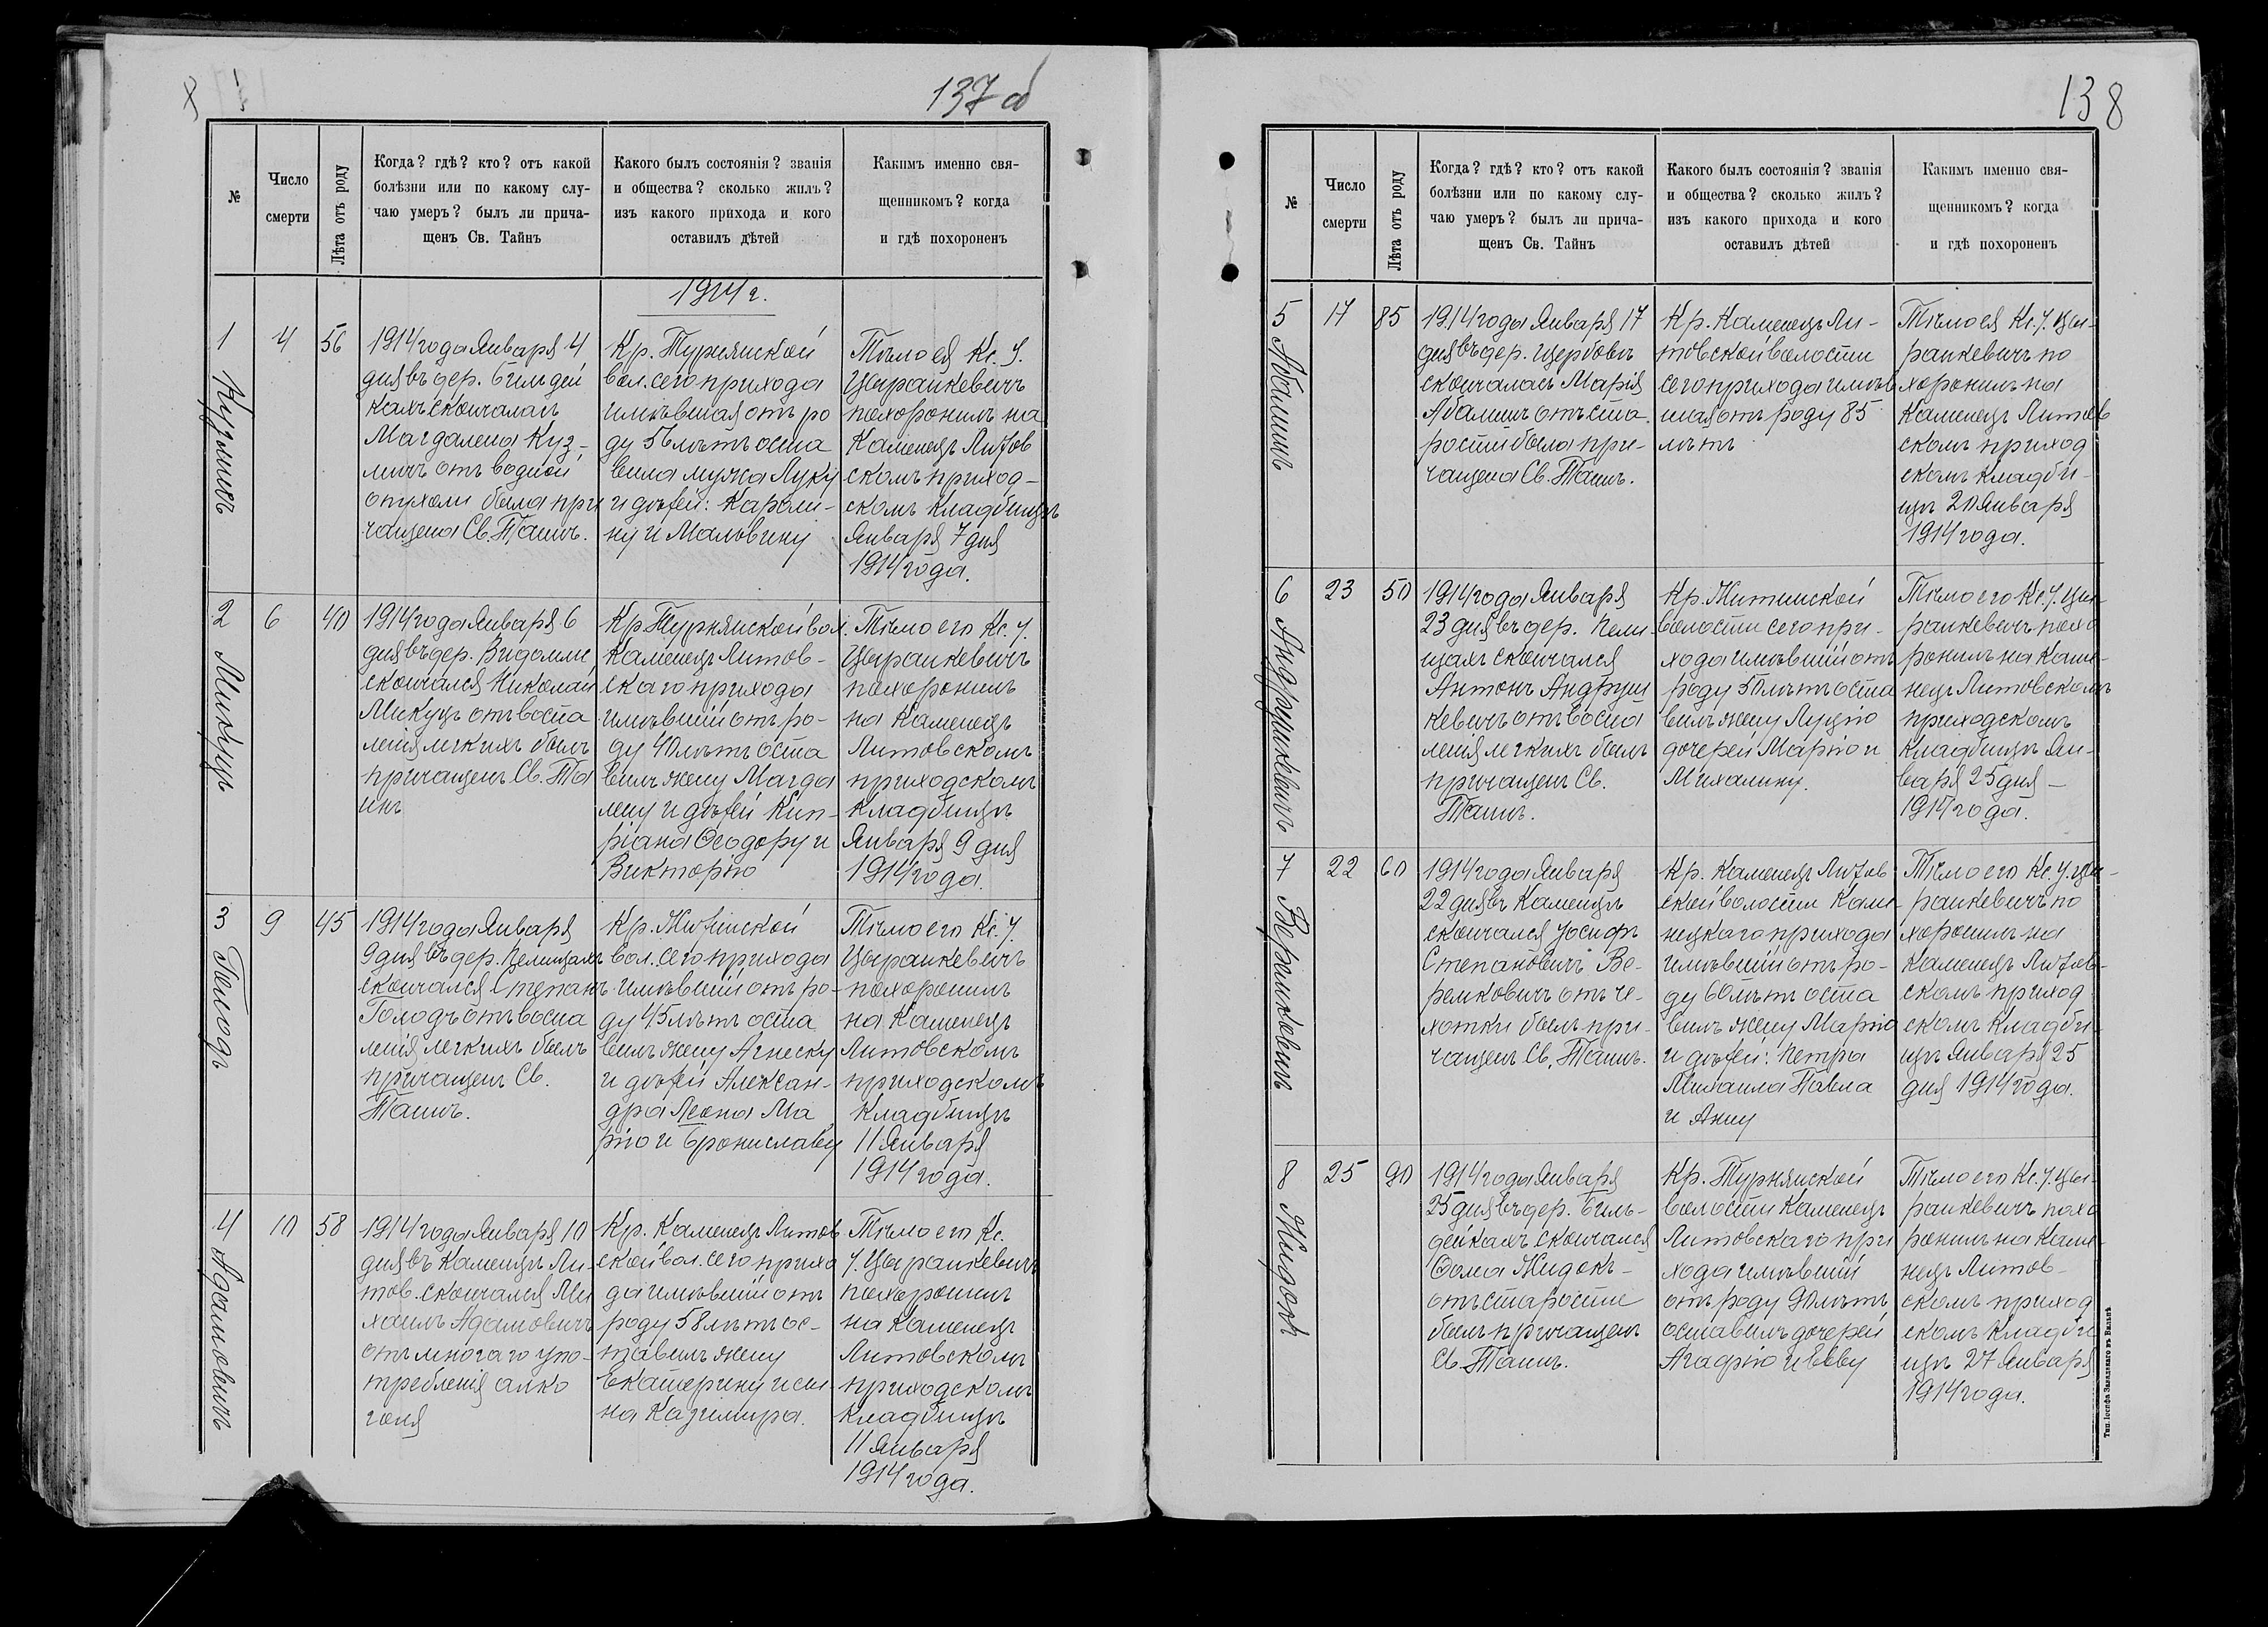 137 об
№
Число
смерти
Лѣта отъ роду
Когда? гдѣ? кто? отъ какой
болѣзни или по какому слу-
чаю умеръ? былъ ли прича-
щенъ Св. Тайнъ
Какого былъ состоянія? званія
и общества? сколько жилъ?
изъ какого прихода и кого
оставилъ дѣтей
Какимъ именно свя-
щенникомъ? когда
и гдѣ похороненъ
1914 г.
1
Кузмичъ
4
56
1914 года Января 4
дня въ дер. Бильдей
кахъ скончалась
Магдалена Куз-
мичъ отъ водной
опухоли была при
чащена Св. Таинъ.
Кр. Турнянской
вол. сего прихода
имѣвшая отъ ро
ду 56 лѣтъ оста
вила мужа Луку
и дѣтей: Кароли-
ну и Мальвину
Тѣло ея Кс. У.
Цыранкевичъ
похоронилъ на
Каменецъ Литов
скомъ приход-
скомъ кладбищѣ
Января 7 дня
1914 года.
2
Микуцъ
6
40
1914 года Января 6
дня въ дер. Видомли
скончался Николай
Микуцъ отъ воспа
ленія легкихъ былъ
причащенъ Св. Та
инъ
Кр. Турнянской вол.
Каменецъ Литов-
скаго прихода
имѣвшій отъ ро-
ду 40 лѣтъ оста
вилъ жену Магда
лену и дѣтей Кип-
ріана Ѳеодору и
Викторію
Тѣло его Кс. У.
Цыранкевичъ
похоронилъ
на Каменецъ
Литовскомъ
приходскомъ
кладбищѣ
Января 9 дня
1914 года.
3
Голодъ
9
45
1914 года Января
9 дня въ дер. Пелищахъ
скончался Степанъ
Голодъ отъ воспа
ленія легкихъ былъ
причащенъ Св.
Таинъ.
Кр. Житинской
вол. сего прихода
имѣвшій отъ ро-
ду 45 лѣтъ оста
вилъ жену Агнеску
и дѣтей Алексан-
дра Леона Ма
рію и Брониславу
Тѣло его Кс. У.
Цыранкевичъ
похоронилъ
на Каменецъ
Литовскомъ
приходскомъ
кладбищѣ
11 Января
1914 года.
4
Адамовичъ
10
58
1914 года Января 10
дня въ Каменцѣ Ли-
тов. скончался Ми
хаилъ Адамовичъ
отъ многаго упо-
требленія алко
голя
Кр. Каменецъ Литов
ской вол. сего прихо
да имѣвшій отъ
роду 58 лѣтъ ос-
тавилъ жену
Екатерину и сы-
на Казимира.
Тѣло его Кс.
У. Цыранкевичъ
похоронилъ
на Каменецъ
Литовскомъ
приходскомъ
кладбищѣ
11 Января
1914 года.
138
№
Число
смерти
Лѣта отъ роду
Когда? гдѣ? кто? отъ какой
болѣзни или по какому слу-
чаю умеръ? былъ ли прича-
щенъ Св. Тайнъ
Какого былъ состоянія? званія
и общества? сколько жилъ?
изъ какого прихода и кого
оставилъ дѣтей
Какимъ именно свя-
щенникомъ? когда
и гдѣ похороненъ
5
Абалинъ
17
85
1914 года Января 17
дня въ дер. Щербовъ
скончалась Марія
Абалинъ отъ ста
рости была при-
чащена Св. Таинъ.
Кр. Каменецъ Ли-
товской волости
сего прихода имѣв
шая отъ роду 85
лѣтъ
Тѣло ея Кс. У. Цы-
ранкевичъ по
хоронилъ на
Каменецъ Литов
скомъ приход
скомъ кладби-
щѣ 20 Января
1914 года.
6
Андрушкевичъ
23
50
1914 года Января
23 дня въ дер. Пели-
щахъ скончался
Антонъ Андруш
кевичъ отъ воспа
ленія легкихъ былъ
причащенъ Св.
Таинъ.
Кр. Житинской
волости сего при-
хода имѣвшій отъ
роду 50 лѣтъ оста
вилъ жену Луцію
дочерей Марію и
Михалину.
Тѣло его Кс. У. Цы-
ранкевичъ похо
ронилъ на Каме-
нецъ Литовскомъ
приходскомъ
кладбищѣ Ян-
варя 25 дня —
1914 года.
7
Веремковичъ
22
60
1914 года Января
22 дня въ Каменцѣ
скончался Іосифъ
Степановичъ Ве-
ремковичъ отъ ча-
хотки былъ при-
чащенъ Св. Таинъ.
Кр. Каменецъ Литов
ской волости Каме-
нецкаго прихода
имѣвшій отъ ро-
ду 60 лѣтъ оста
вилъ жену Марію
и дѣтей: Петра
Михаила Павла
и Анну
Тѣло его Кс. У. Цы-
ранкевичъ по
хоронилъ на
Каменецъ Литов-
скомъ приход
скомъ кладби-
щѣ Января 25
дня 1914 года.
8
Жидокъ
25
90
1914 года Января
25 дня въ дер. Биль-
дейкахъ скончался
Ѳома Жидокъ-
отъ старости
былъ причащенъ
Св. Таинъ.
Кр. Турнянской
волости Каменецъ
Литовскаго при
хода имѣвшій
отъ роду 90 лѣтъ
оставилъ дочерей
Агафію и Евву
Тѣло его Кс. У. Цы-
ранкевичъ похо
ронилъ на Каме-
нецъ Литов-
скомъ приход
скомъ кладби
щѣ 27 Января
1914 года.
Тип. Іосифа Завадзкаго въ Вильнѣ